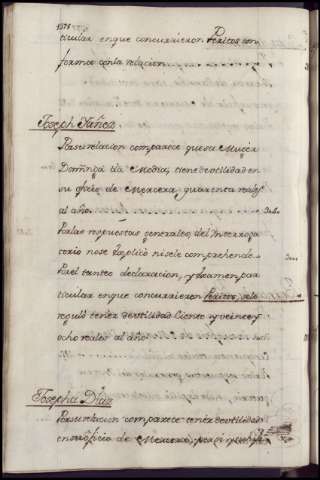 1375
ticular en que concurrieron Peritos con
forme con la relacion
Joseph Nuñez.
Por su relacion comparece que su Muger
Doming.ª da Modia, tiene de utilidad en
su ofizio de Mercera, quarenta reales
al año.
Por las respuestas generales del Interroga
torio no se explico ni se le comprehende.
Por el tanteo declaracion, y examen par
ticular en que concurrieron Peritos, se le
reguló tener de utilidad Ciento y veinte y
ocho reales al año.
Josepha Diaz
Por su relacion comparece tener de utilidad
en su oficio de Mercera,